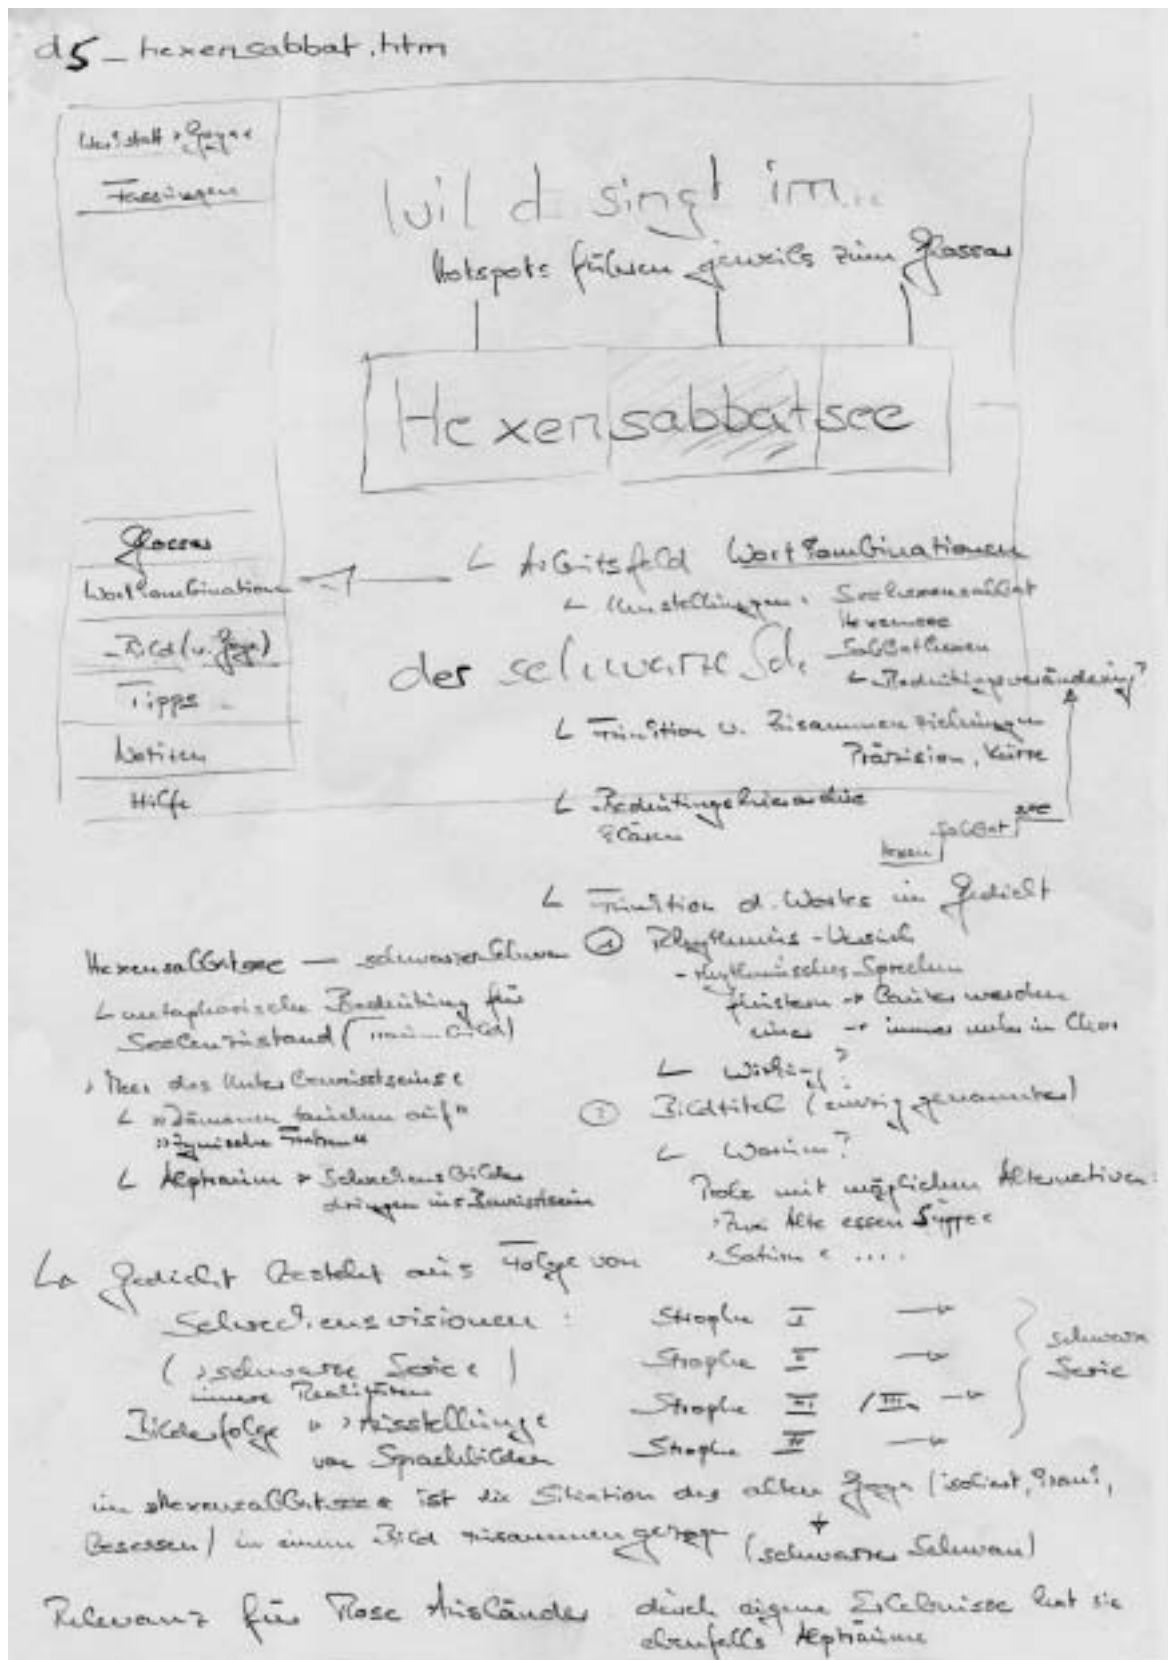 d5_hexensabbat.htm
Werkstatt ›Goya‹
Fassungen
wild singt im...
Hotspots führen jeweils zum Glossar
Hexensabbatsee
Glossar
Wortkombination
Bild (v. Goya)
Tipps
Notizen
Hilfe
Arbeitsfeld Wortkombinationen
Umstellungen: Seehexensabbat
Hexensee
Sabbathexen
Bedeutungsveränderung?
der schwarze Sch.
Funktion v. Zusammenziehungen
Präzision, Kürze
Bedeutungshierarchie
klären
Hexen sabbat see
Funktion d. Wortes im Gedicht
① Rhythmus-Versuch
- rhythmisches Sprechen
flüstern → lauter werden
einer → immer mehr im Chor
Wirkung?
② Bildtitel (einzig genannter)
Warum?
Probe mit möglichen Alternativen:
›Zwei Alte essen Suppe‹
›Saturn‹ ....
Hexensabbatsee — schwarzer Schwan
metaphorische Bedeutung für
Seelenzustand (Traumbild)
›Meer des Unterbewusstseins‹
»Dämonen tauchen auf«
»zynische Fratzen«
Alptraum Schreckensbilder
dringen ins Bewusstsein
Gedicht besteht aus Folge von
Schreckensvisionen:
(›schwarze Serie‹)
innere Realitäten
Bilderfolge ›Ausstellung‹
von Sprachbildern
Strophe I →
Strophe II →
Strophe III / III →
Strophe IV →
schwarze
Serie
im »Hexensabbatsee« ist die Situation des alten Goya (isoliert, krank,
besessen) in einem Bild zusammengezogen + (schwarzer Schwan)
Relevanz für Rose Ausländer durch eigene Erlebnisse hat sie
ebenfalls Alpträume